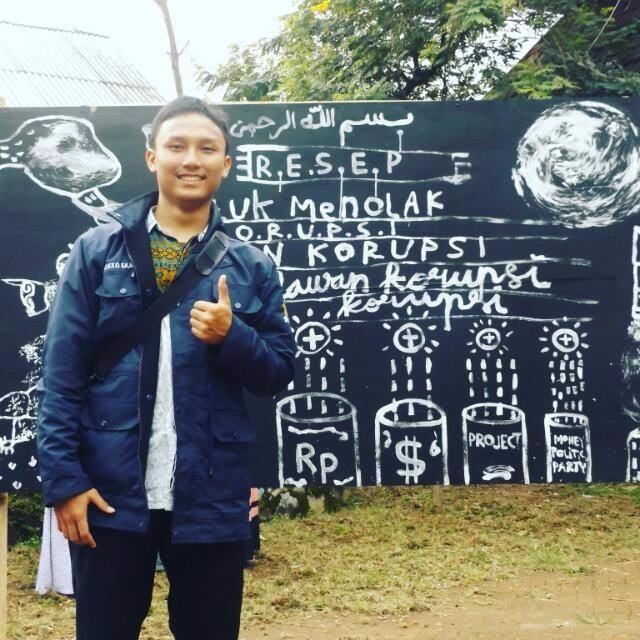 بسم الله الرحمن
R.E.S.E.P
UK MENOLAK
O.R.U.P.S.I
N KORUPSI
awan korupsi
korupsi
Rp
$
PROJECT
MONEY
POLITIC
PARTY